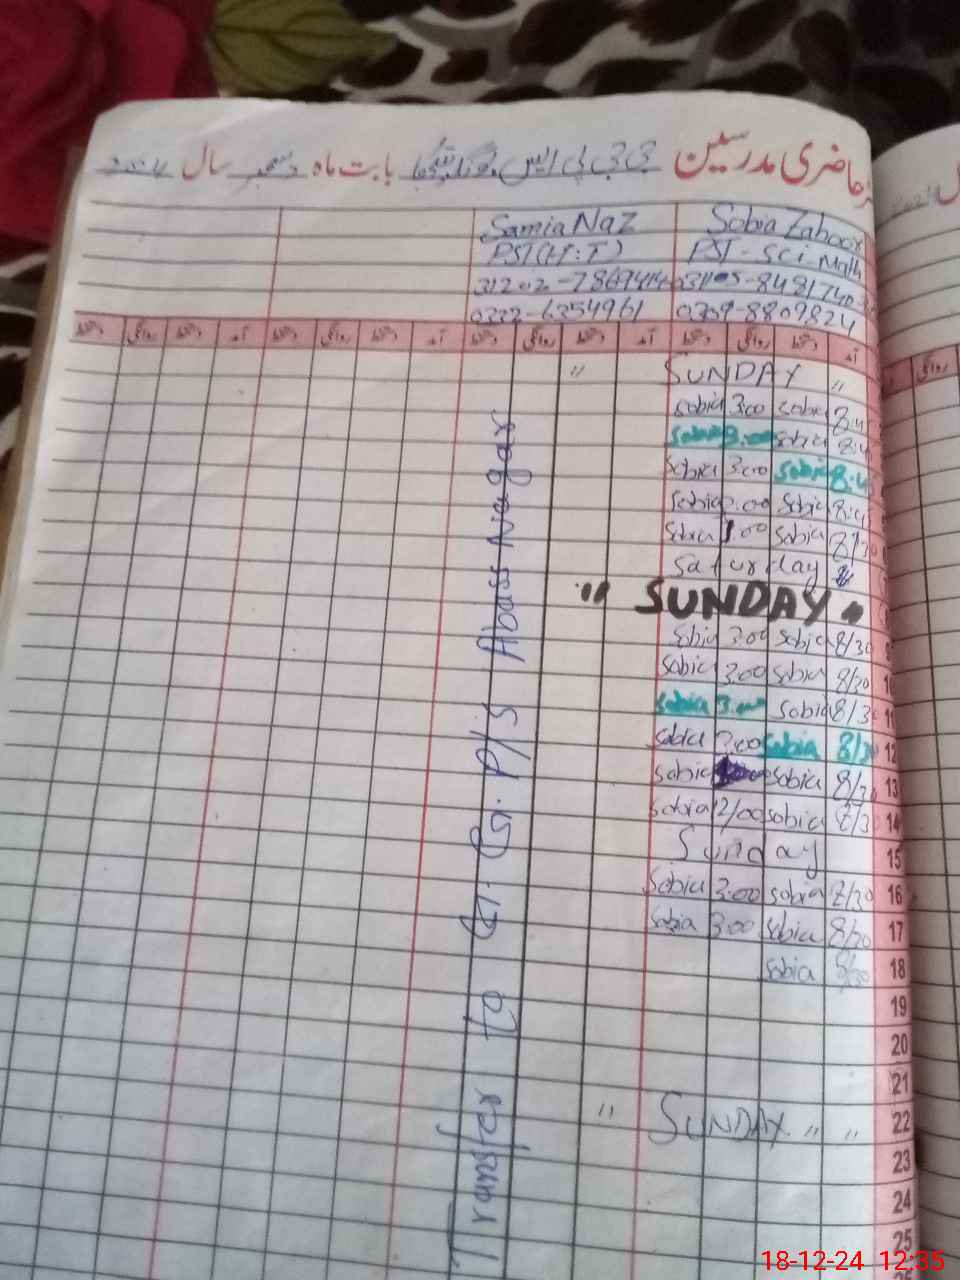 حاضری مدرسین جی جی پی ایس بابت ماہ دسمبر سال
Samia Naz Sobia Zahoor
PST (H.T) PST - Sci. Math
0322-6354961 0309-8809824
آمد دستخط روانگی دستخط آمد دستخط روانگی دستخط آمد دستخط روانگی دستخط آمد دستخط روانگی دستخط
" SUNDAY "
Sobia 3:00 Sobia
Sobia 3:00 Sobia
Sobia 3:00 Sobia
Sobia Sobia
Sobia 1:00 Sobia 8/30
Saturday
" SUNDAY "
Sobia 3:00 Sobia 8/30
Sobia 3:00 Sobia 8/30
Sobia 3:00 Sobia 8/30 11
Sobia 3:00 Sobia 8/30 12
Sobia Sobia 8/30 13
Sobia 12/00 Sobia 8/30 14
Sunday 15
Sobia 3:00 Sobia 8/30 16
Sobia 3:00 Sobia 8/30 17
Sobia 8/30 18
19
20
21
" SUNDAY " " 22
23
24
25
Transfer To Gt. G. P/S Abass Nagar
18-12-24 12:35